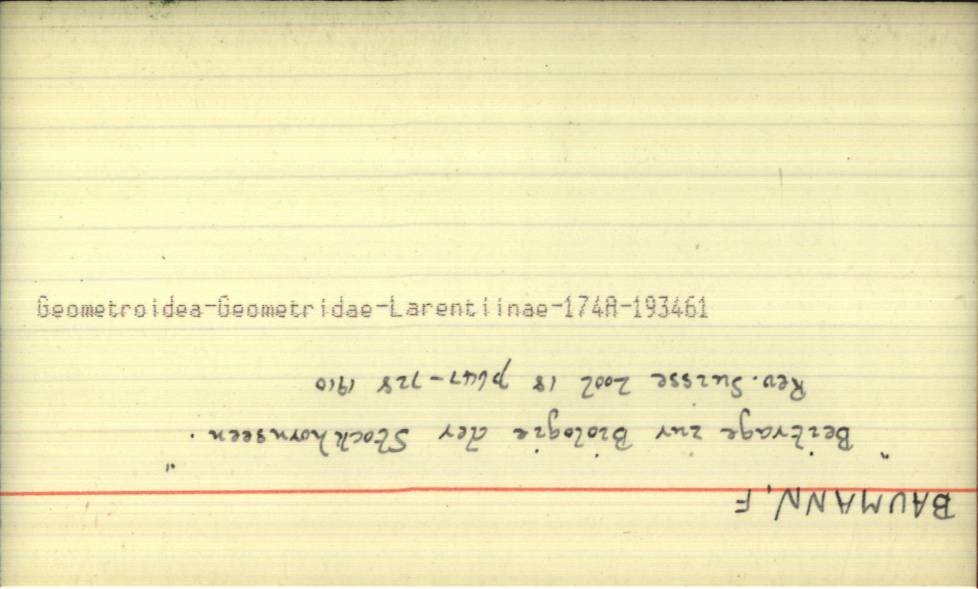 BAUMANN, F
"Beitrage zur Biologie der Stockhornseen."
Rev. Suisse Zool 18 p647-728 1910
Geometroidea-Geometridae-Larentiinae-174A-193461